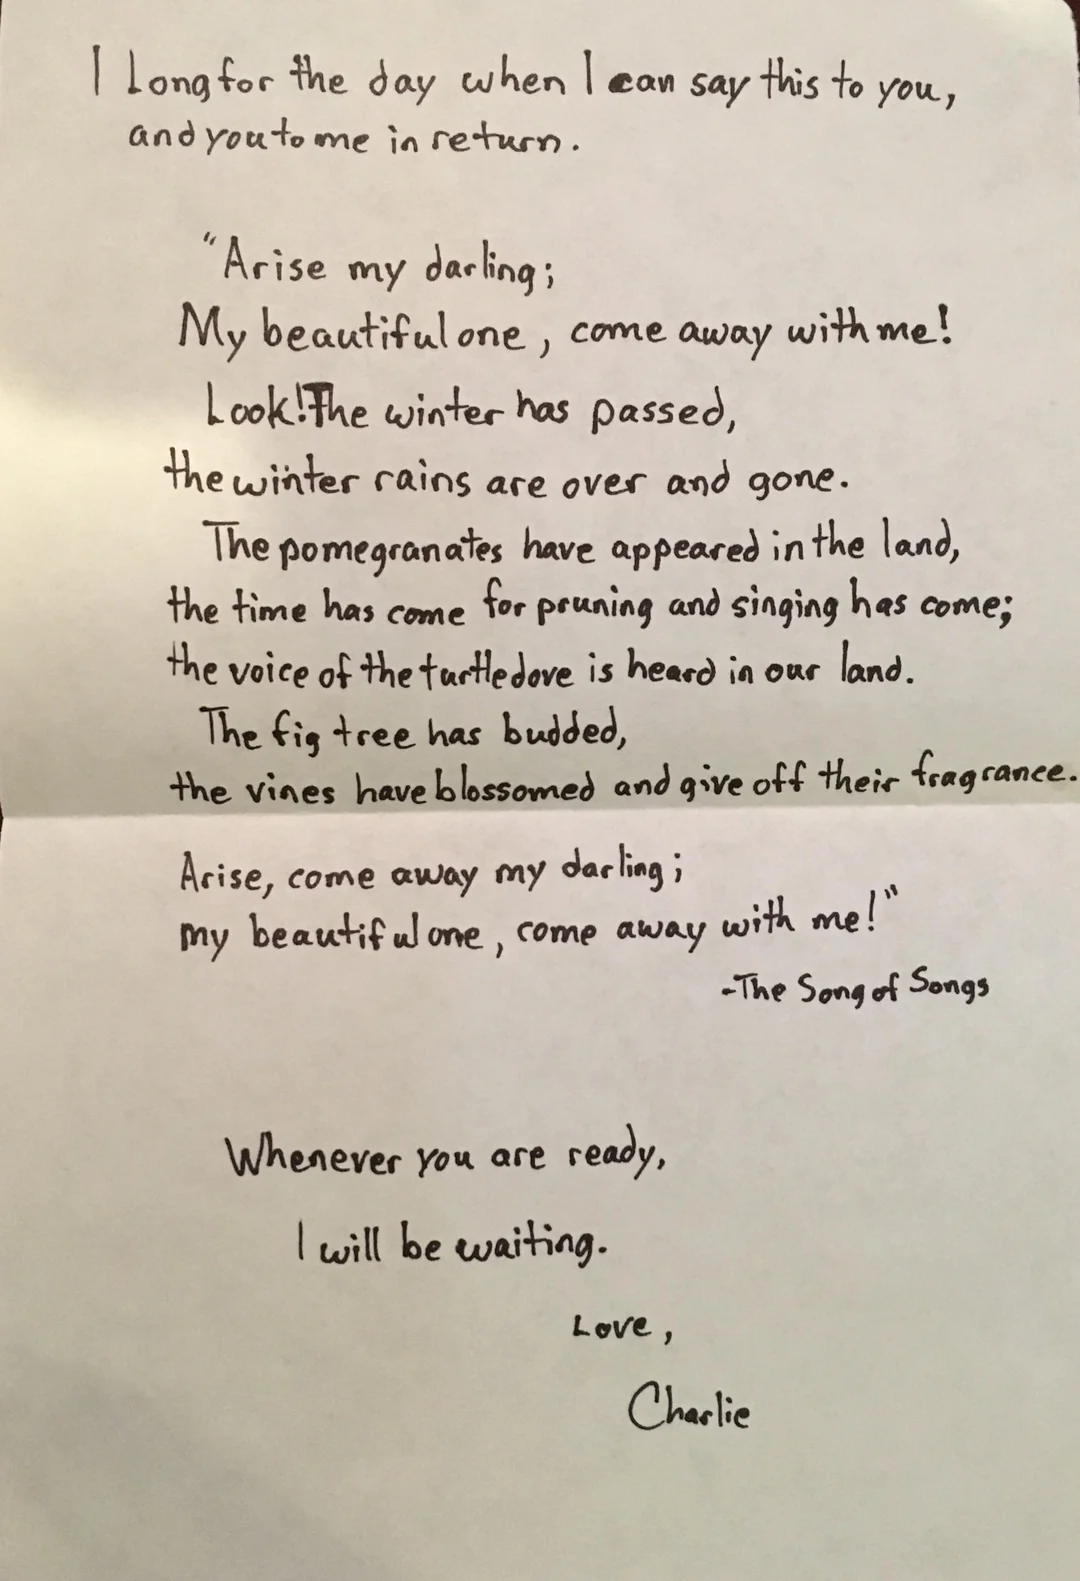 I Long for the day when I can say this to you,
and you to me in return.
"Arise my darling;
My beautiful one, come away with me!
Look! The winter has passed,
the winter rains are over and gone.
The pomegranates have appeared in the land,
the time has come for pruning and singing has come;
the voice of the turtledove is heard in our land.
The fig tree has budded,
the vines have blossomed and give off their fragrance.
Arise, come away my darling;
my beautiful one, come away with me!"
-The Song of Songs
Whenever you are ready,
I will be waiting.
Love,
Charlie